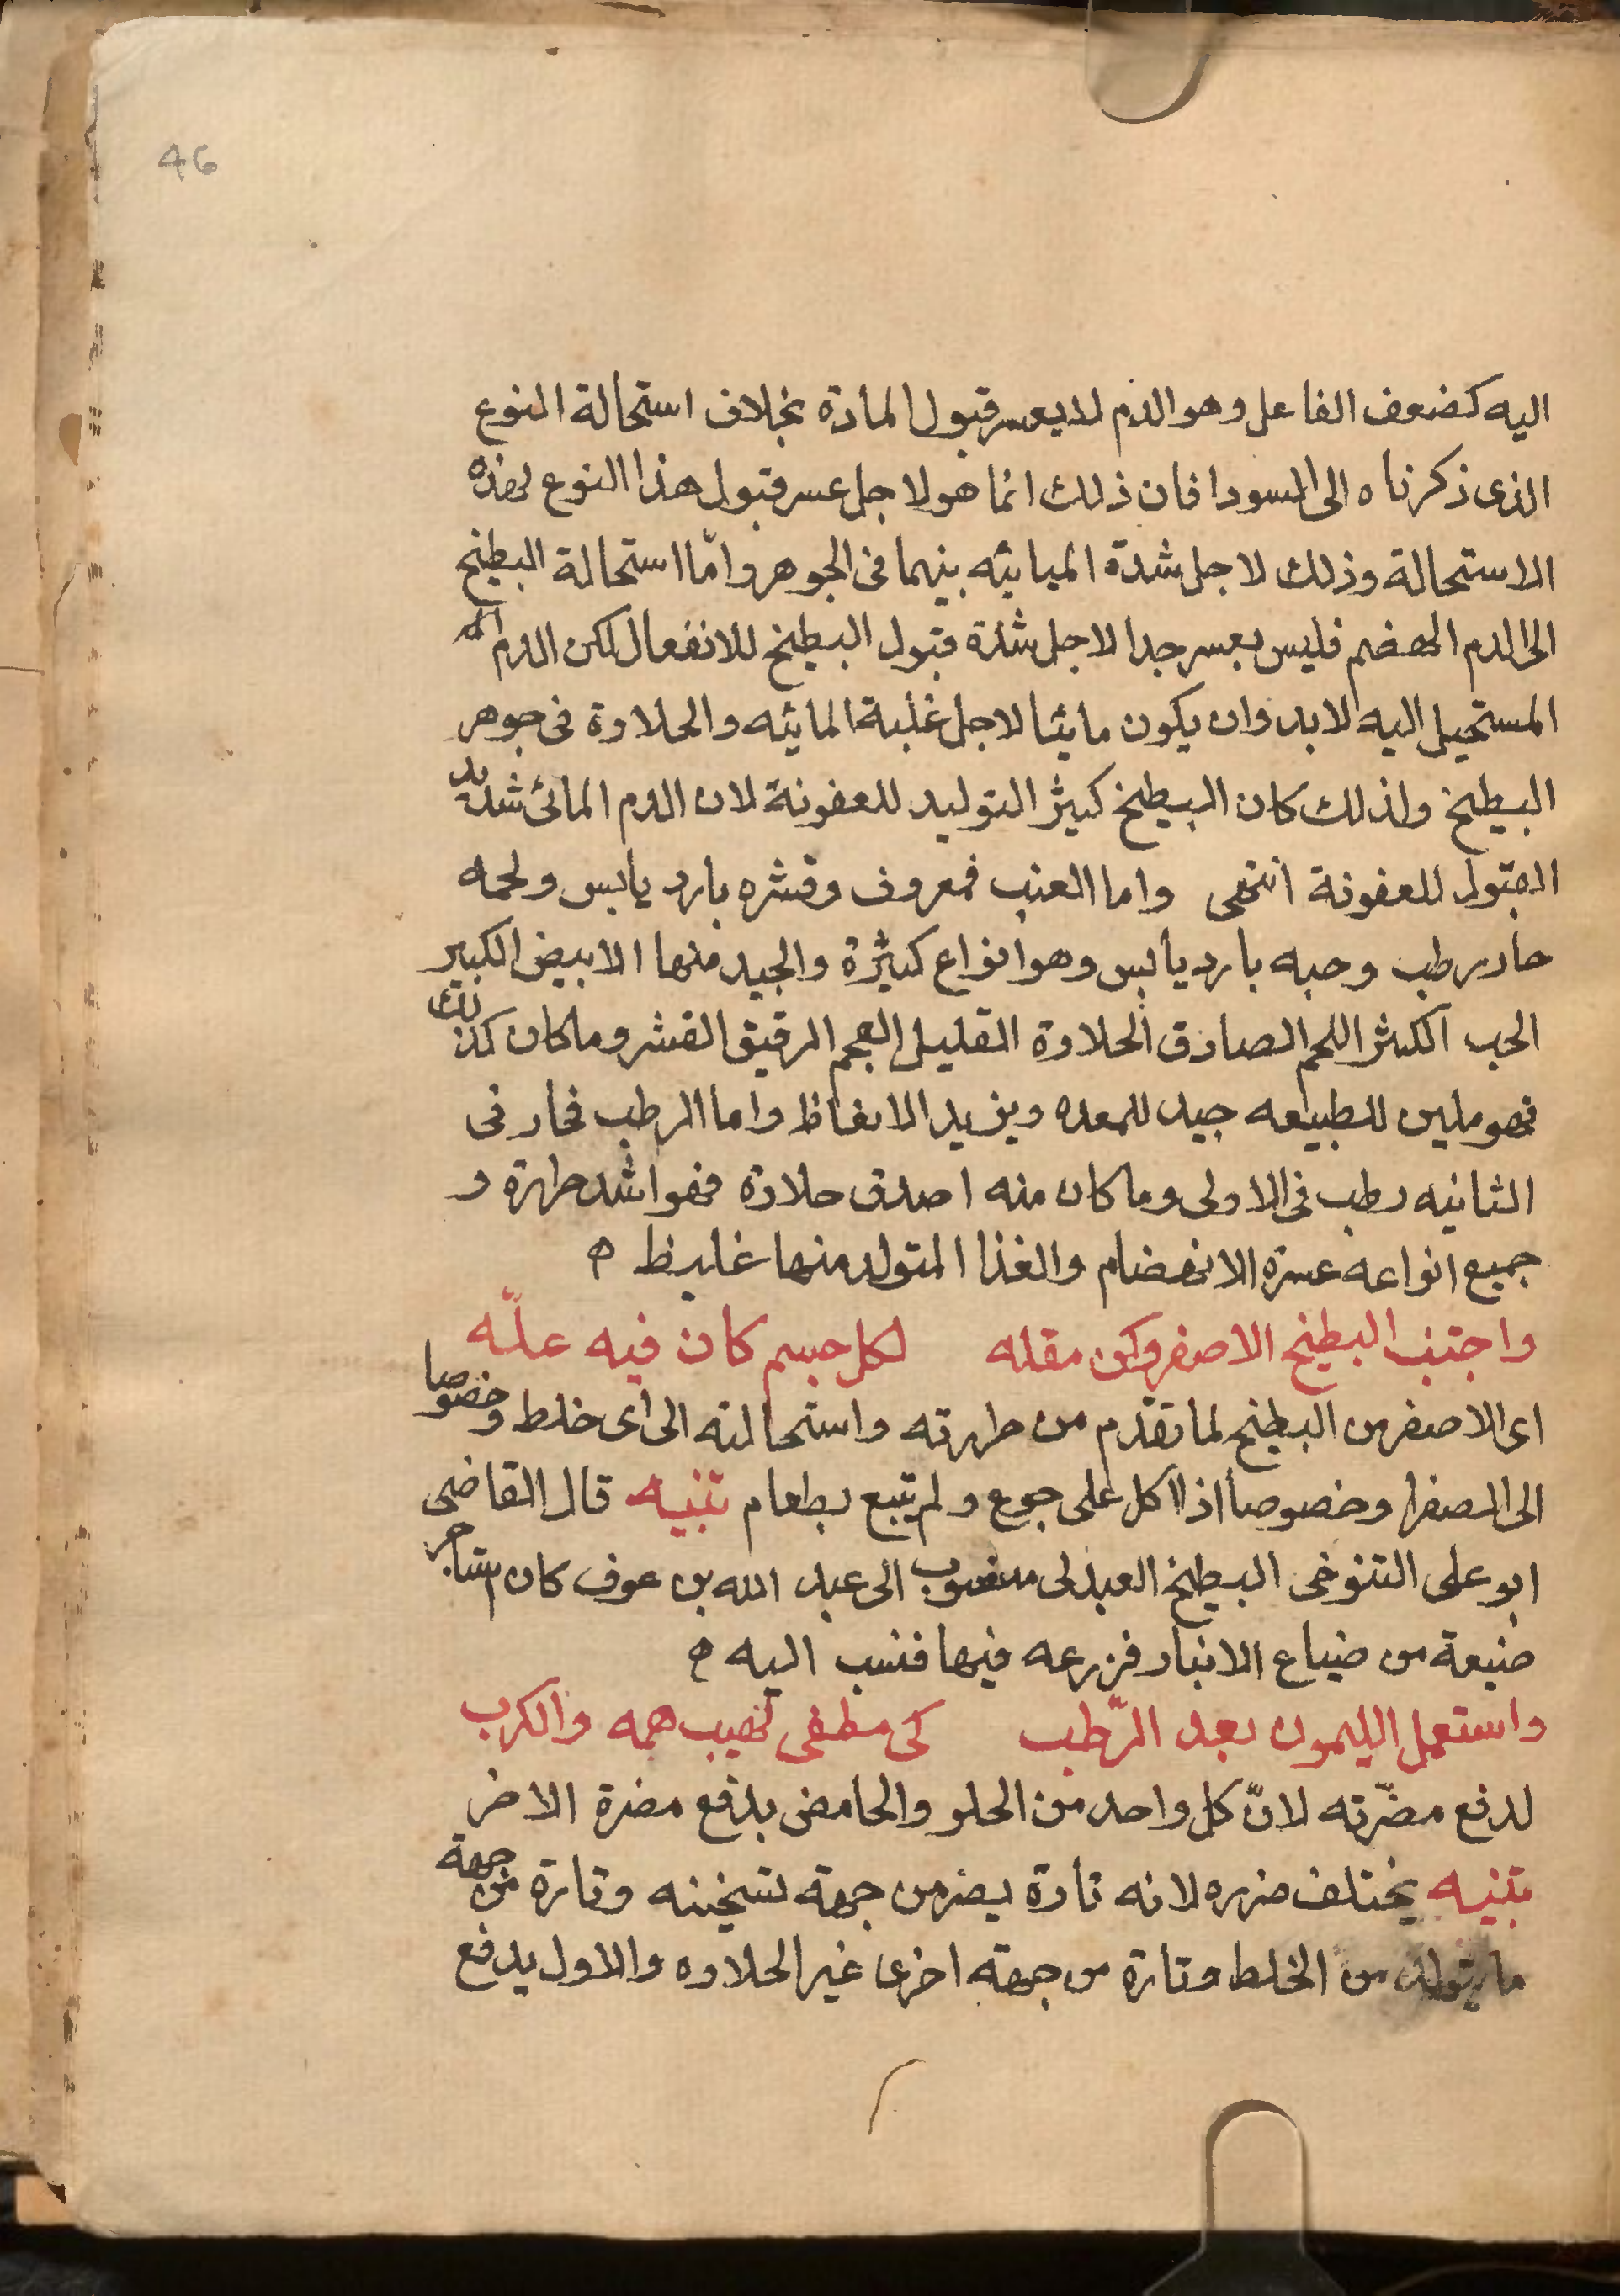 46
اليه كضعف الفاعل وهو الدم لا يعسر قبول المادة بخلاف استحالة النوع
الذى ذكرناه الى السودا فان ذلك انما هو لاجل عسر قبول هذا النوع لهذه
الاستحالة وذلك لاجل شدة المباينه بينهما فى الجوهر وامّا استحالة البطيخ
الى الدم الهضم فليس بعسر جدا لاجل شدة قبول البطيخ للانفعال لكن الدم
المستحيل اليه لابد وان يكون مائيا لاجل غلبة المائيه والحلاوة فى جوهر
البطيخ ولذلك كان البطيخ كثير التوليد للعفونة لان الدم المائى شديد
القبول للعفونة انتهى واما العنب فمعروف وقشره بارد يابس ولحمه
حار رطب وحبه بارد يابس وهو انواع كثيرة والجيد منها الابيض الكبير
الحب الكثير اللحم الصادق الحلاوة القليل العجم الرقيق القشر وما كان كذلك
فهو ملين للطبيعه جيد للمعده ويزيد الانعاظ واما الرطب فحار فى
الثانيه رطب فى الاولى وما كان منه اصدق حلاوة فهو اشد حرارة و
جميع انواعه عسرة الانهضام والغذا المتولد منها غليظ ه
واجتنب البطيخ الاصفر وكن مقله لكل جسم كان فيه علّه
اى الاصفر من البطيخ لما تقدّم من حرارته واستحالته الى اى خلط وخصوصا
الى الصفرا وخصوصا اذا اكل على جوع ولم يتبع بطعام تنبيه قال القاضى
ابو على التنوخى البطيخ العبدلى منسوب الى عبد الله بن عوف كان استاجر
ضيعة من ضياع الانبار فزرعه فيها فنسب اليه ه
واستعمل الليمون بعد الرّطب كى مطفى لهيب همه والكرب
لدفع مضرّته لانّ كل واحد من الحلو والحامض يدفع مضرة الاخر
تنبيه يختلف ضرره لانه تارة يضر من جهة تسخينه وتارة من جهة
ما يتولد من الخلط وتارة من جهة اخرى غير الحلاوه والاول يدفع